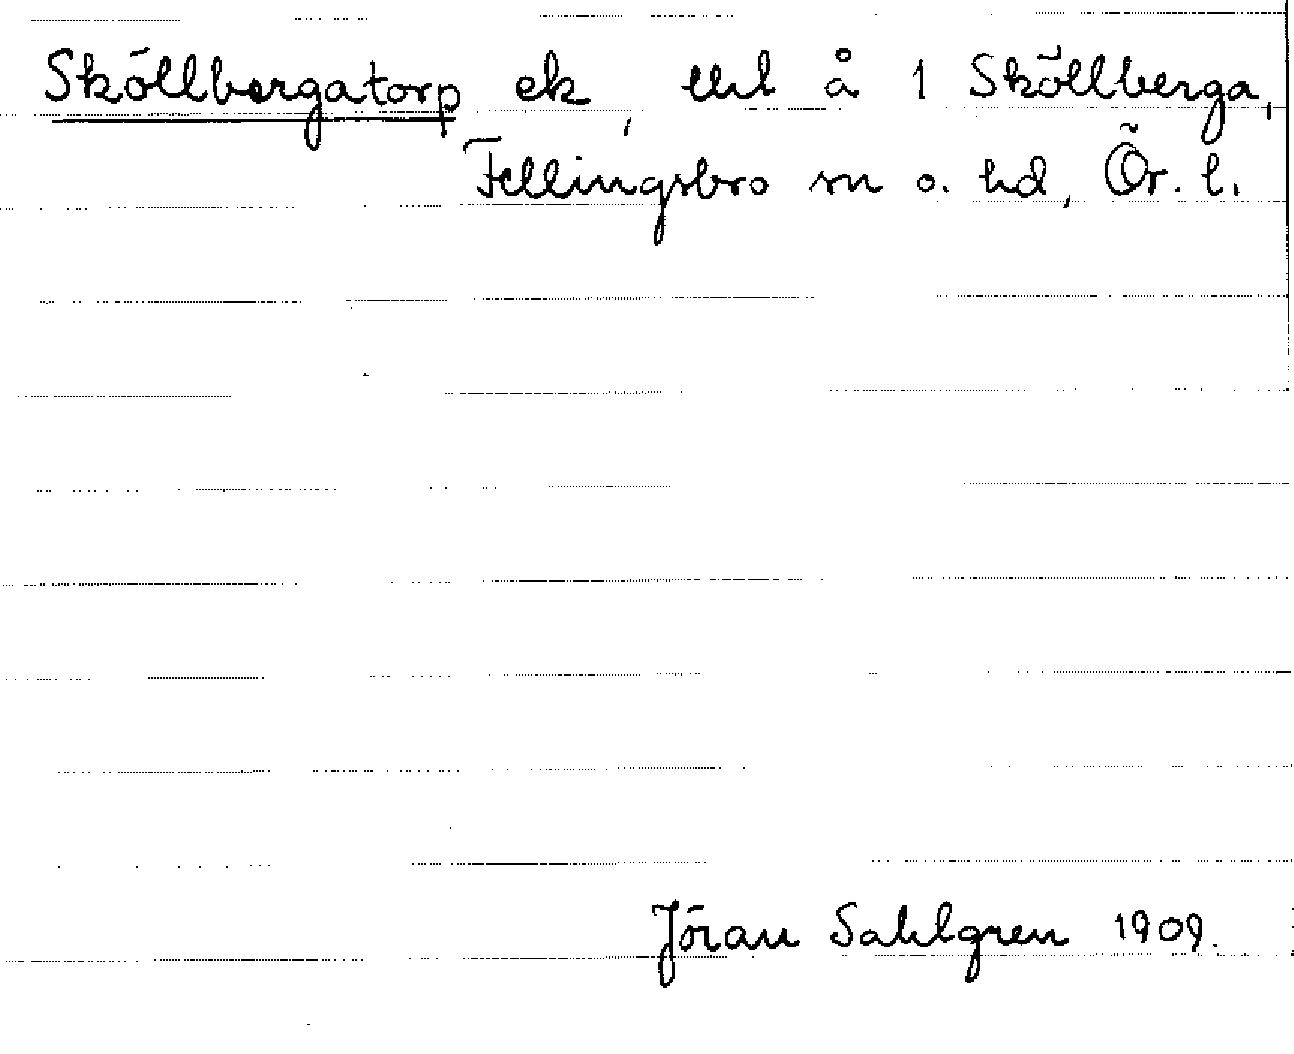 Sköllbergatorp ek, utul å 1 Sköllberga,
Fellingsbro sn o. hd, Ör. l.
Jöran Sahlgren 1909.